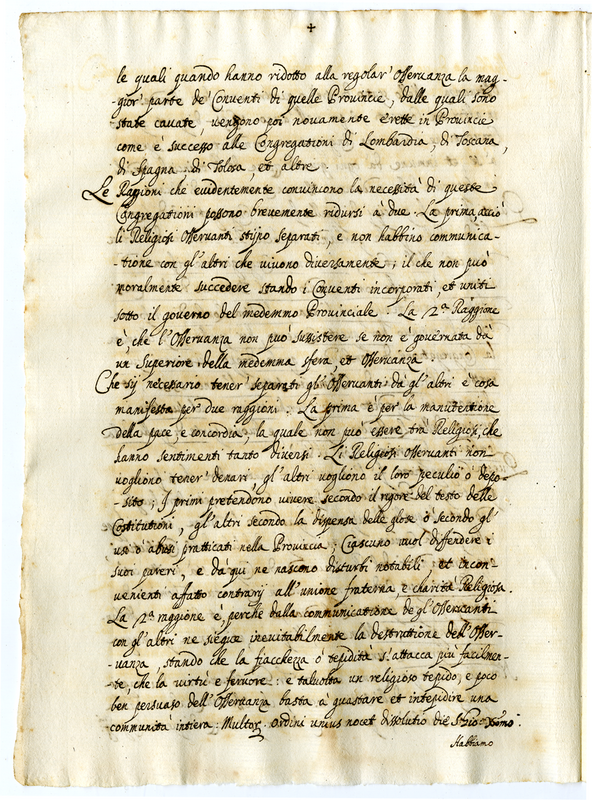 le quali quando hanno ridotto alla regolar' Osseruanza la mag-
-gior' parte de' Conuenti di quelle Prouincie, dalle quali sono
state cauate, uengono poi nouamente erette in Prouincie
come è successo alle Congregationi di Lombardia, di Toscana,
di Spagna, di Tolosa, et altre
Le Raggioni che euidentemente conuincono la necessità di queste
Congregationi possono breuemente ridursi à due. La prima acciò
li Religiosi Osseruanti stijno separati, e non habbino communica-
-tione con gl'altri che uiuono diuersamente; il che non può
moralmente succedere stando i Conuenti incorporati, et uniti
sotto il gouerno del medemmo Prouinciale. La 2.a Raggione
è, che l'Osseruanza non può sussistere se non è gouernata dà
un Superiore della medemma sfera, et Osseruanza
Che sij necessario tener' separati gl'Osseruanti dà gl'altri è cosa
manifesta per due raggioni. La prima è per la manutentione
della pace, e concordia, la quale non può essere trà Religiosi, che
hanno sentimenti tanto diuersi. Li Religiosi osseruanti non
uogliono tener' denari, gl'altri uogliono il loro peculio ò depo-
-sito; I primi pretendono uiuere secondo il rigore del testo delle
Costitutioni, gl'altri secondo la dispensa delle glose ò secondo gl'
usi ò abusi pratticati nella Prouincia; Ciascuno uuol diffendere i
suoi pareri, e dà qui ne nascono disturbi notabili, et incon-
uenienti affatto contrarij all'unione fraterna e charità Religiosa.
La 2.a raggione è, perche dalla communicatione de gl'Osseruanti
con gl'altri ne siegue ineuitabilmente la destruttione dell'Osser-
-uanza, stando che la fiacchezza ò tepidità s'attacca più facilmen-
-te, che la uirtù e feruore: e taluolta un religioso tepido, e poco
ben persuaso dell'Osseruanza basta à guastare et intepidire una
communità intiera: Multor. ordini unius nocet dissolutio
Habbiamo